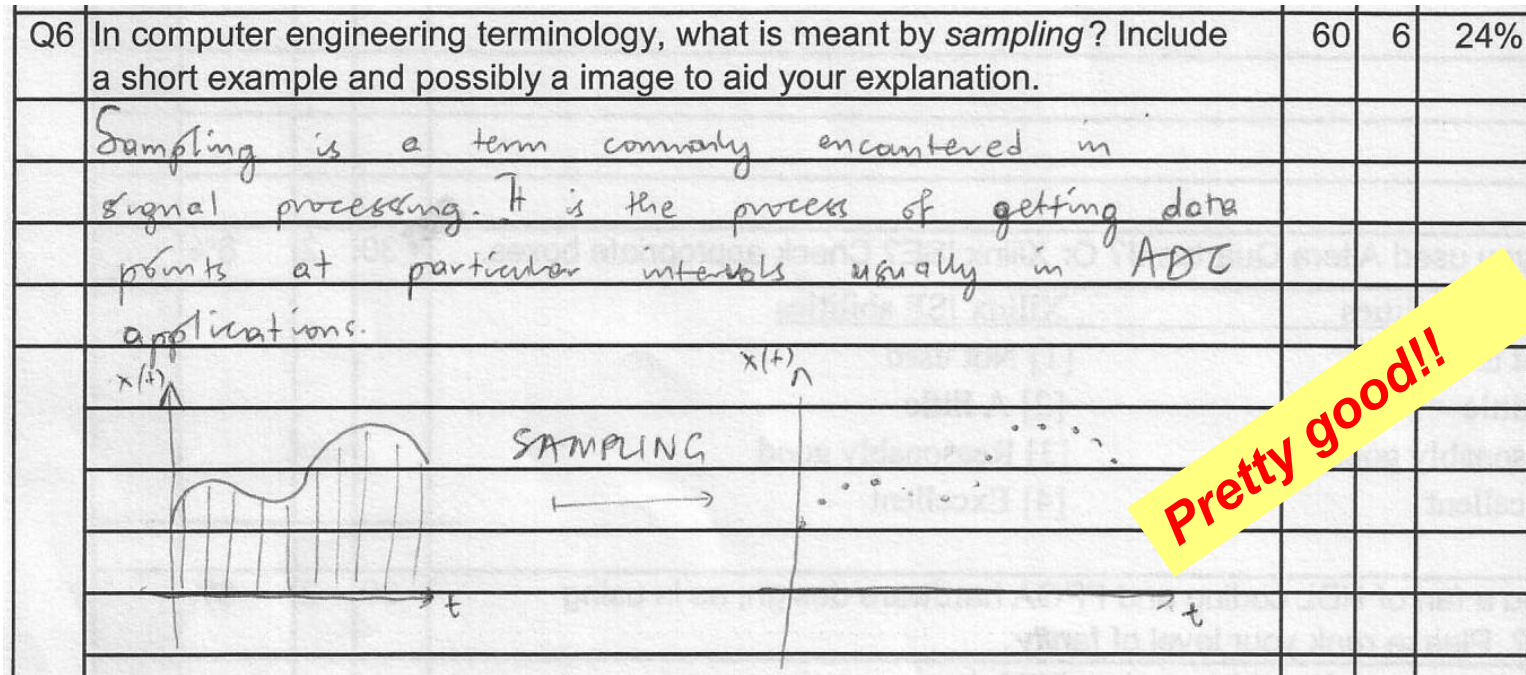 Q6 In computer engineering terminology, what is meant by sampling? Include 60 6 24%
a short example and possibly a image to aid your explanation.
Sampling is a term commonly encountered in
signal processing. It is the process of getting data
points at particular intervals usually in ADC
applications.
x(t) x(t)
SAMPLING
Pretty good!!
t t